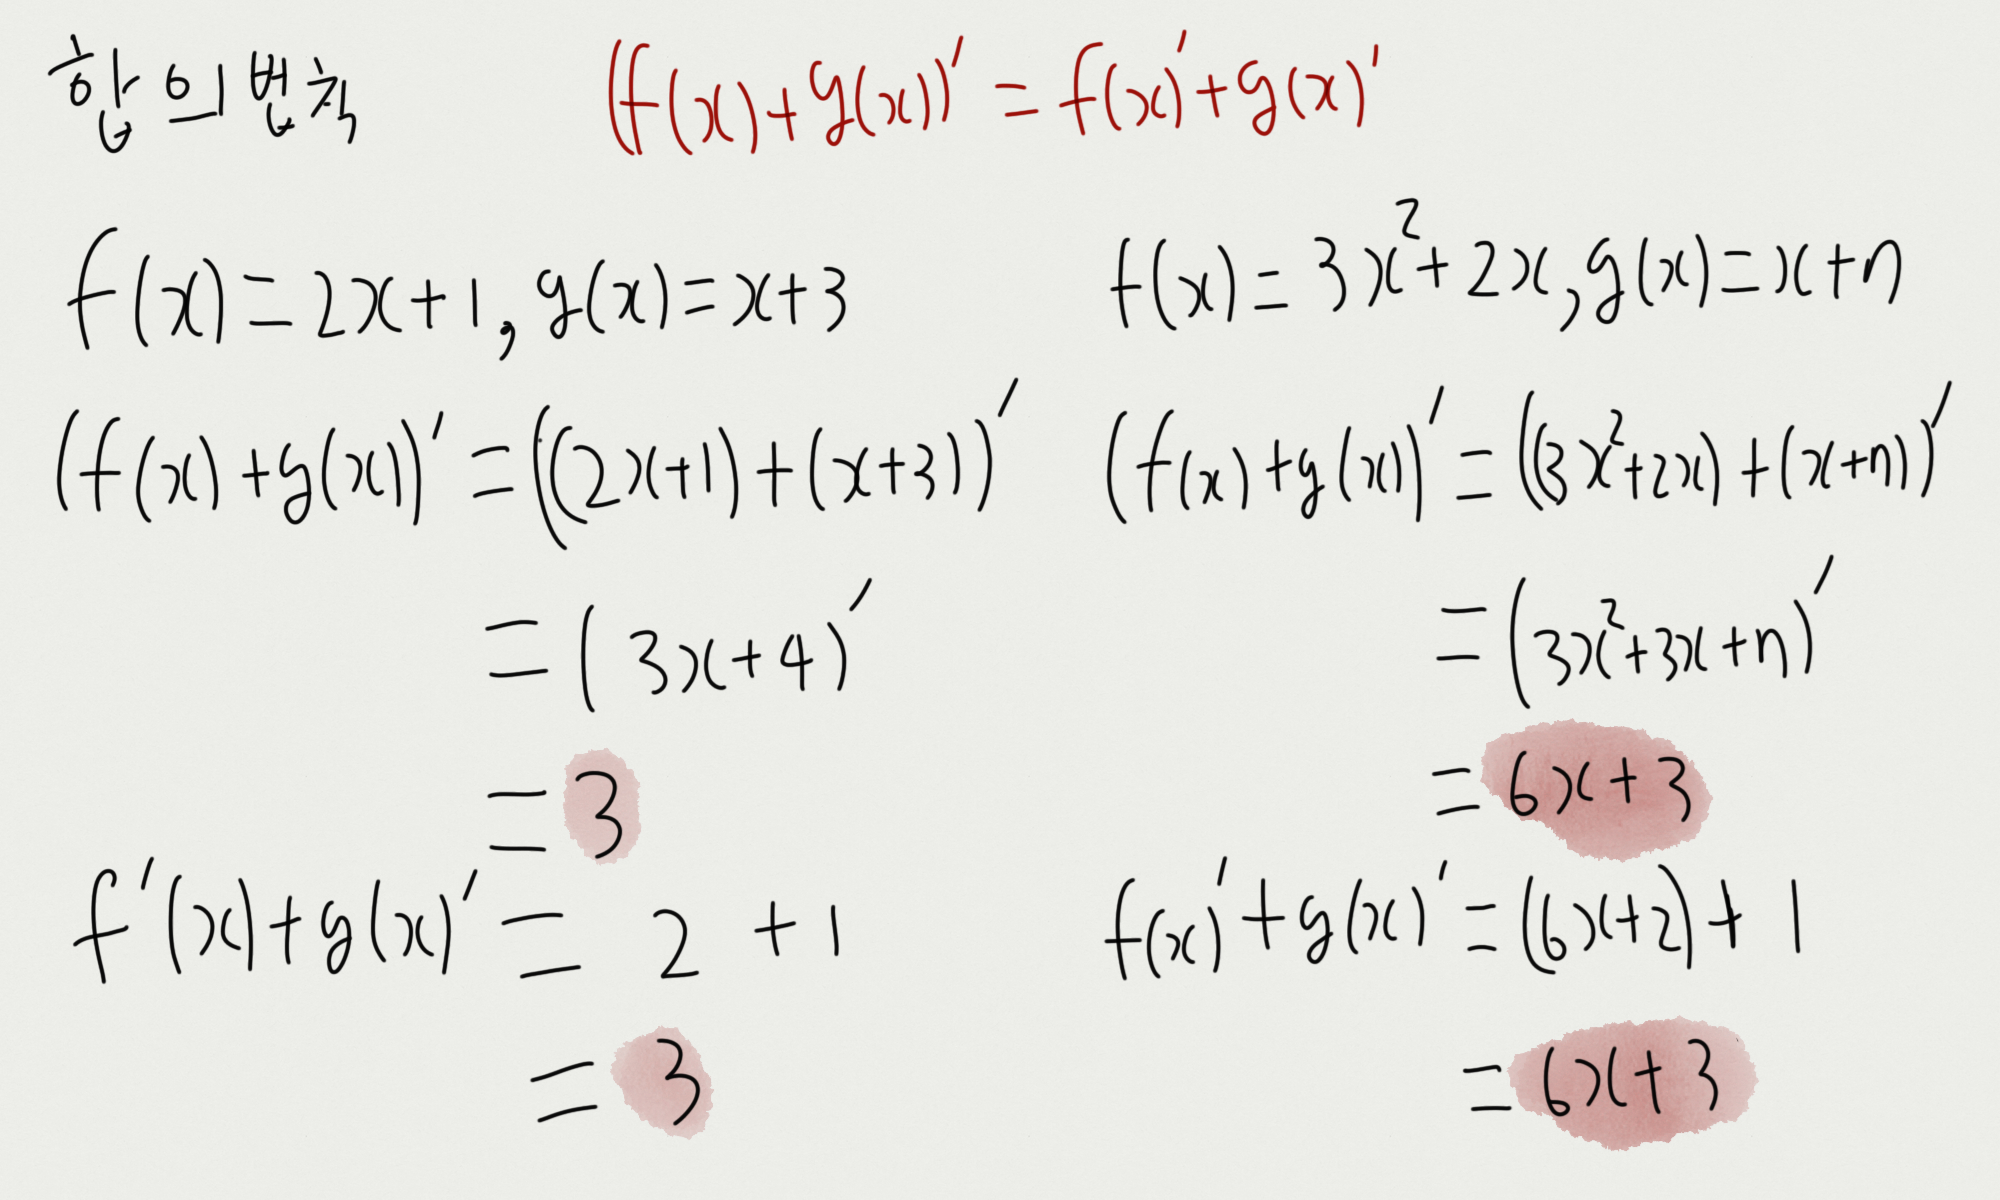 합의 법칙
(f(x)+g(x))′ = f(x)′+g(x)′
f(x)=2x+1, g(x)=x+3
(f(x)+g(x))′ = ((2x+1)+(x+3))′
= (3x+4)′
= 3
f′(x)+g(x)′ = 2 + 1
= 3
f(x)=3x²+2x, g(x)=x+n
(f(x)+g(x))′ = ((3x²+2x)+(x+n))′
= (3x²+3x+n)′
= 6x+3
f(x)′+g(x)′ = (6x+2)+1
= 6x+3